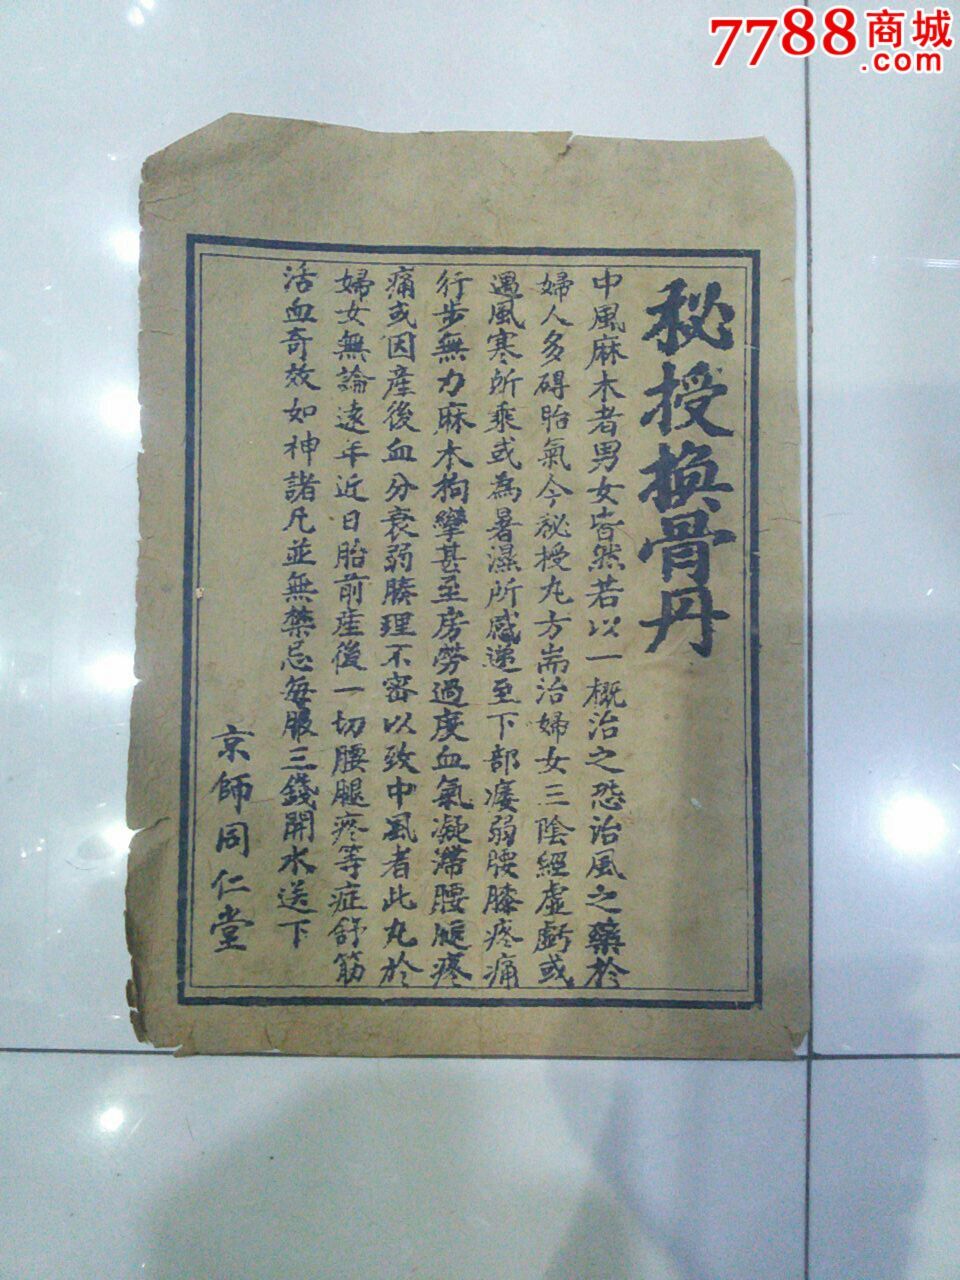 7788商城
.com
秘授換骨丹
中風麻木者男女皆然若以一概治之恐治風之藥於
婦人多碍胎氣今秘授丸方耑治婦女三陰經虛虧或
遇風寒所乘或為暑濕所感遞至下部痿弱腰膝疼痛
行步無力麻木拘攣甚至房勞過度血氣凝滯腰腿疼
痛或因產後血分衰弱腠理不密以致中風者此丸於
婦女無論遠年近日胎前產後一切腰腿疼等症舒筋
活血奇效如神諸凡並無禁忌每服三錢開水送下
京師同仁堂